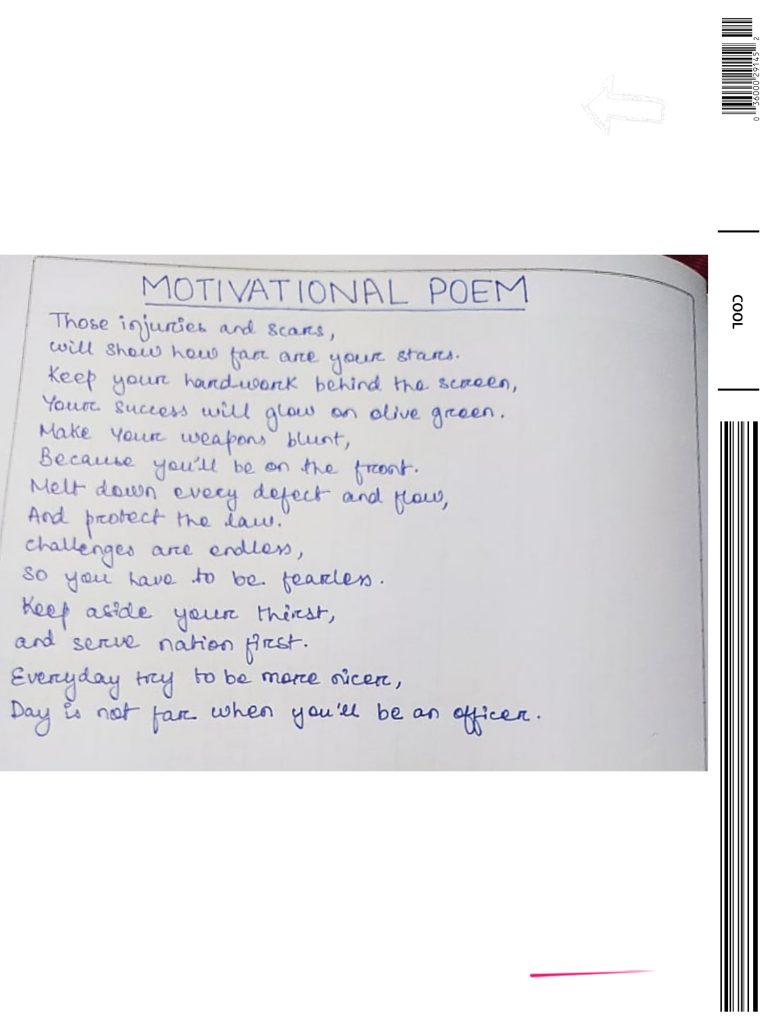 MOTIVATIONAL POEM
Those injuries and scars,
will show how far are your stars.
Keep your hardwork behind the screen,
Your success will glow on olive green.
Make your weapons blunt,
Because you'll be on the front.
Melt down every defect and flow,
And protect the law.
Challenges are endless,
So you have to be fearless.
Keep aside your thirst,
and serve nation first.
Everyday try to be more nicer,
Day is not far when you'll be an officer.
0 36000 29145 2
COOL